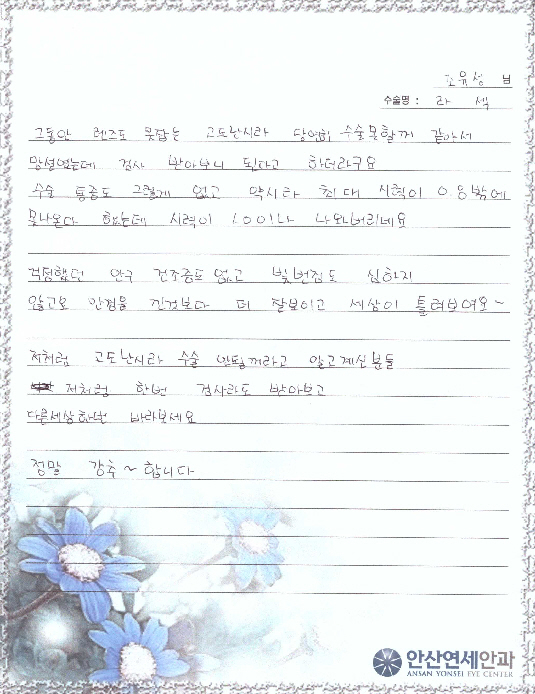 조유성 님
수술명 : 라 섹
그동안 렌즈도 못잡는 고도난시라 당연히 수술못할꺼 같아서
망설였는데 검사 받아보니 된다고 하더라구요
수술 통증도 그렇게 없고 약시라 최대 시력이 0.8밖에
못나온다 했는데 시력이 1.0이나 나와버리네요
걱정했던 안구 건조증도 없고 빛번짐도 심하지
않고요 안경을 낀것보다 더 잘보이고 세상이 틀려보여요~
저처럼 고도난시라 수술 안될꺼라고 알고계신분들
저처럼 한번 검사라도 받아보고
다른세상한번 바라보세요
정말 강추~합니다
안산연세안과
ANSAN YONSEI EYE CENTER